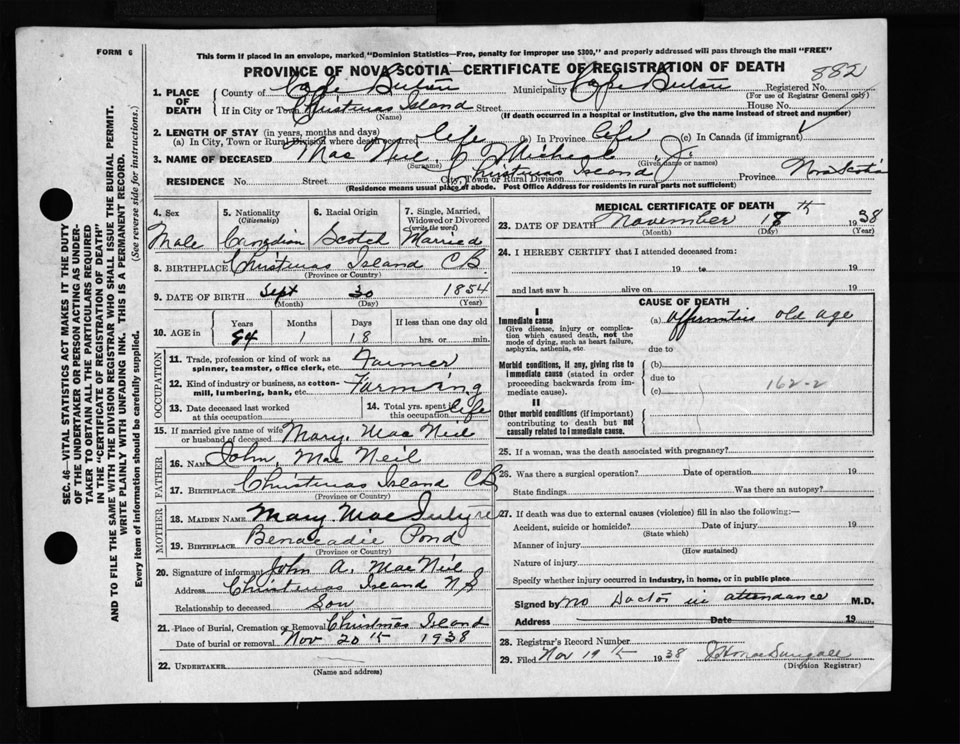 FORM 6
This form if placed in an envelope, marked "Dominion Statistics—Free, penalty for improper use $300," and properly addressed will pass through the mail "FREE"
PROVINCE OF NOVA SCOTIA—CERTIFICATE OF REGISTRATION OF DEATH
882
1. PLACE OF DEATH
County of Cape Breton Municipality Cape Breton Registered No.
(For use of Registrar General only)
If in City or Town Christmas Island Street House No.
(Name) (If death occurred in a hospital or institution, give the name instead of street and number)
2. LENGTH OF STAY (in years, months and days)
(a) In City, Town or Rural Division where death occurred life (b) In Province life (c) In Canada (if immigrant)
3. NAME OF DECEASED Mac Neil, Michael J.
(Surname) (Given names or names)
RESIDENCE No. Street City, Town or Rural Division Christmas Island Province Nova Scotia
(Residence means usual place of abode. Post Office Address for residents in rural parts not sufficient)
4. Sex
Male
5. Nationality
(Citizenship)
Canadian
6. Racial Origin
Scotch
7. Single, Married, Widowed or Divorced
(write the word)
Married
8. BIRTHPLACE Christmas Island CB
(Province or Country)
9. DATE OF BIRTH Sept 30 1854
(Month) (Day) (Year)
10. AGE in
Years Months Days If less than one day old
84 1 18 hrs. or min.
OCCUPATION
11. Trade, profession or kind of work as spinner, teamster, office clerk, etc. Farmer
12. Kind of industry or business, as cotton-mill, lumbering, bank, etc. Farming
13. Date deceased last worked at this occupation
14. Total yrs. spent in this occupation life
15. If married give name of wife or husband of deceased Mary. Mac Neil
FATHER
16. NAME John, Mac Neil
17. BIRTHPLACE Christmas Island CB
(Province or Country)
MOTHER
18. MAIDEN NAME Mary
19. BIRTHPLACE Benacadie Pond
(Province or Country)
20. Signature of informant John A. MacNeil
Address Christmas Island N.S
Relationship to deceased Son
21. Place of Burial, Cremation or Removal Christmas Island
Date of burial or removal Nov 20th 1938
22. UNDERTAKER
(Name and address)
MEDICAL CERTIFICATE OF DEATH
23. DATE OF DEATH November 18th 1938
(Month) (Day) (Year)
24. I HEREBY CERTIFY that I attended deceased from:
19 to 19
and last saw h alive on 19
CAUSE OF DEATH
I
Immediate cause (a) old age
Give disease, injury or complication which caused death, not the mode of dying, such as heart failure, asphyxia, asthenia, etc.
due to
Morbid conditions, if any, giving rise to immediate cause (stated in order proceeding backwards from immediate cause).
(b)
due to
(c)
162-2
II
Other morbid conditions (if important) contributing to death but not causally related to immediate cause.
25. If a woman, was the death associated with pregnancy?
26. Was there a surgical operation? Date of operation 19
State findings Was there an autopsy?
27. If death was due to external causes (violence) fill in also the following:—
Accident, suicide or homicide? Date of injury 19
(State which)
Manner of injury
(How sustained)
Nature of injury
Specify whether injury occurred in industry, in home, or in public place
Signed by No Doctor in attendance M.D.
Address Date 19
28. Registrar's Record Number
29. Filed Nov 19th 1938
(Division Registrar)
SEC. 46—VITAL STATISTICS ACT MAKES IT THE DUTY
OF THE UNDERTAKER OR PERSON ACTING AS UNDER-
TAKER TO OBTAIN ALL THE PARTICULARS REQUIRED
IN THE "CERTIFICATE OF REGISTRATION OF DEATH"
AND TO FILE THE SAME WITH THE DIVISION REGISTRAR WHO SHALL ISSUE THE BURIAL PERMIT.
WRITE PLAINLY WITH UNFADING INK. THIS IS A PERMANENT RECORD.
Every item of information should be carefully supplied. (See reverse side for instructions.)